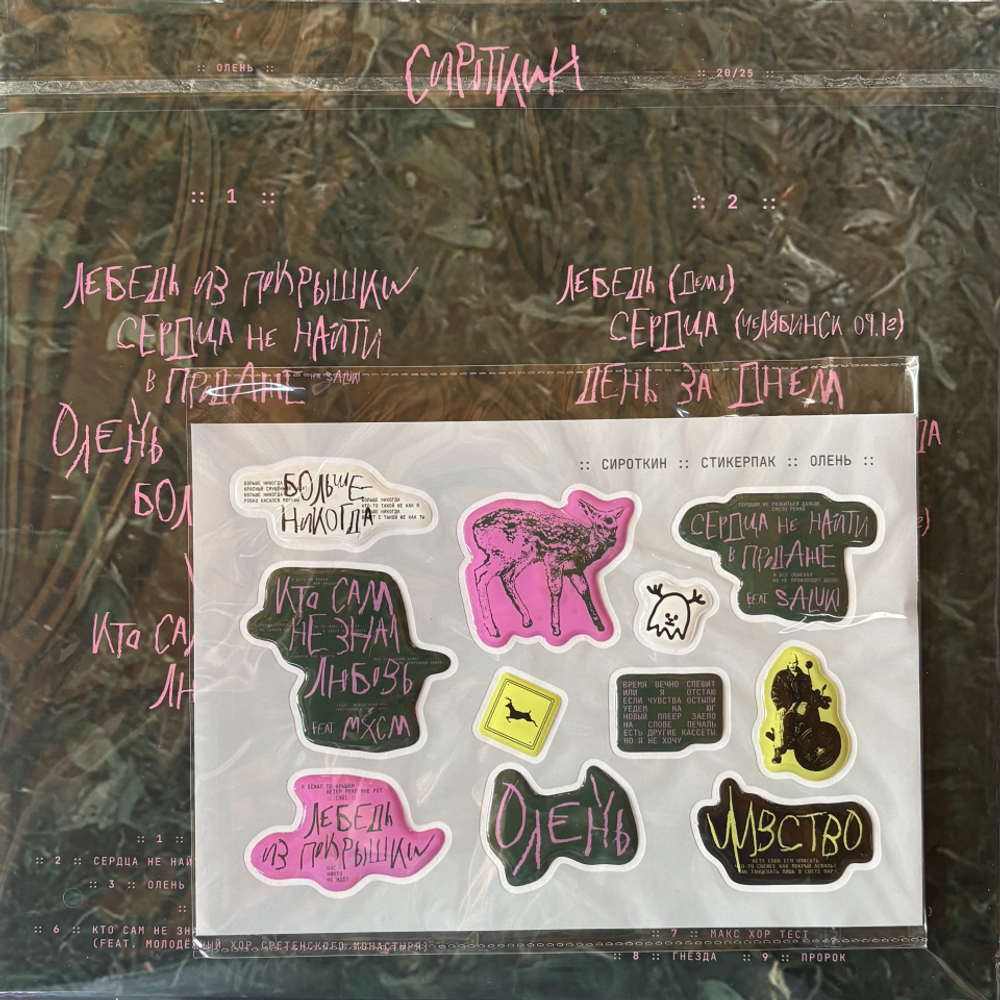 :: ОЛЕНЬ ::
СИРОТКИН
:: 20/25 ::
:: 1 ::
ЛЕБЕДЬ ИЗ ПОКРЫШКИ
СЕРДЦА НЕ НАЙТИ
В ПРОДАЖЕ
SALUKI
ОЛЕНЬ
БОЛ
КТО СА
ЛЮ
:: 2 ::
ЛЕБЕДЬ (ДЕМО)
СЕРДЦА (ЧЕЛЯБИНСК 09.12)
ДЕНЬ ЗА ДНЕМ
:: СИРОТКИН :: СТИКЕРПАК :: ОЛЕНЬ ::
БОЛЬШЕ
НИКОГДА
СЕРДЦА НЕ НАЙТИ
В ПРОДАЖЕ
FEAT SALUKI
КТО САМ
НЕ ЗНАЛ
ЛЮБОВЬ
FEAT МХСМ
ВРЕМЯ ВЕЧНО СПЕШИТ
ИЛИ Я ОТСТАЮ
ЕСЛИ ЧУВСТВА ОСТЫЛИ
УЕДЕМ НА ЮГ
НОВЫЙ ПЛЕЕР ЗАЕЛО
НА СЛОВЕ ПЕЧАЛЬ
ЕСТЬ ДРУГИЕ КАССЕТЫ
НО Я НЕ ХОЧУ
Я БЕЖАЛ ПО КРЫШАМ
ВЕТЕР РВАЛ МНЕ РОТ
ЛЕБЕДЬ
ИЗ ПОКРЫШКИ
НАС
НИКТО
НЕ ЖДЕТ
ОЛЕНЬ
ЧУВСТВО
:: 1 ::
:: 2 :: СЕРДЦА НЕ НАЙ
:: 3 :: ОЛЕНЬ
:: 6 :: КТО САМ НЕ ЗН
(FEAT. МОЛОДЁЖНЫЙ ХОР СРЕТЕНСКОГО МОНАСТЫРЯ)
:: 7 :: МАКС ХОР ТЕСТ
:: 8 :: ГНЁЗДА :: 9 :: ПРОРОК